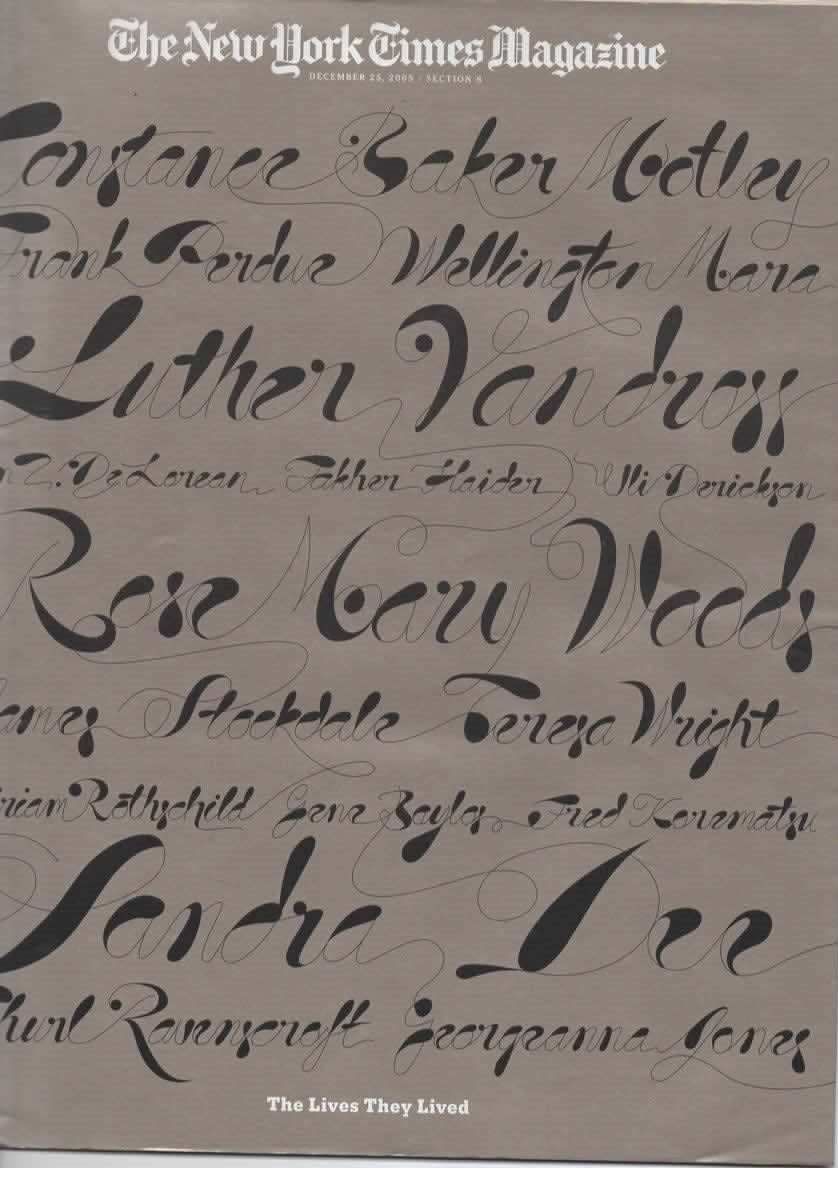 The New York Times Magazine
DECEMBER 25, 2005 / SECTION 6
Constance Baker Motley
Frank Perdue Wellington Mara
Luther Vandross
n Z. DeLorean Fakher Haider Uli Derickson
Rose Mary Woods
ames Stockdale Teresa Wright
riam Rothschild Gene Baylos Fred Korematsu
Sandra Dee
Thurl Ravenscroft Georgeanna Jones
The Lives They Lived